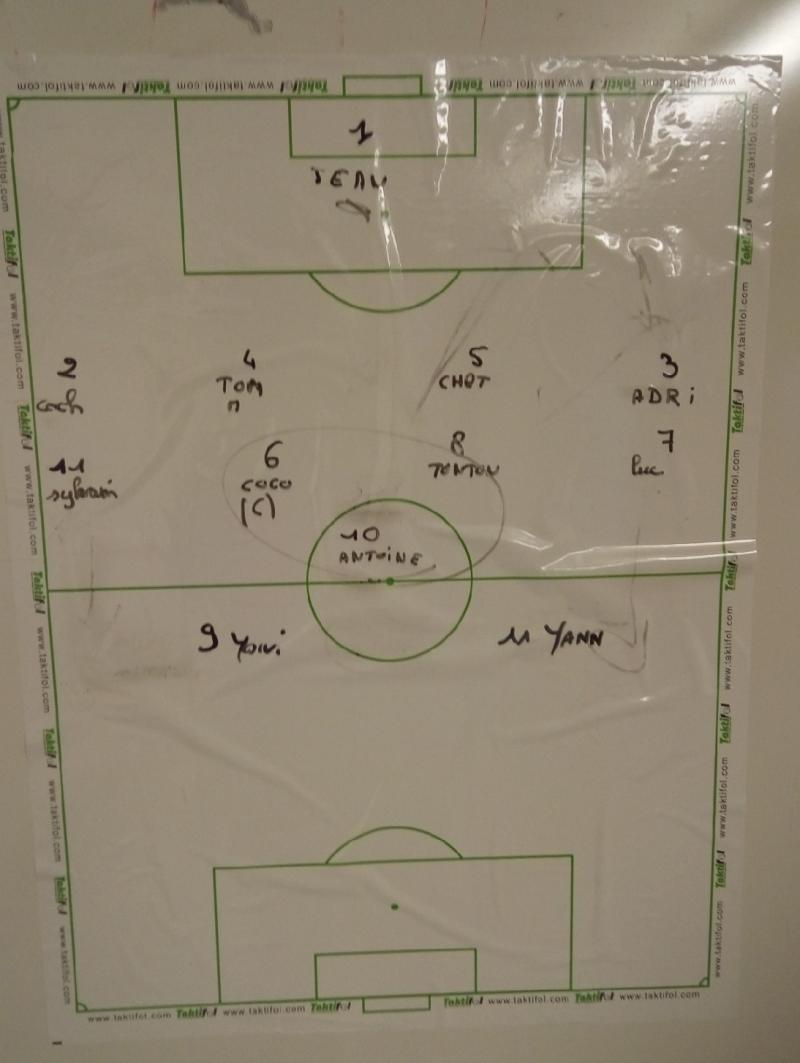 www.taktifol.com Taktifol www.taktifol.com Taktifol www.taktifol.com Taktifol www.taktifol.com Taktifol
1
JEAN
2
4
TOM
5
CHOT
3
ADRi
11
sylvain
6
COCO
(C)
8
TONTON
7
luc
10
ANTOiNE
9 Yoni
11 YANN
www.taktifol.com Taktifol www.taktifol.com Taktifol Taktifol www.taktifol.com Taktifol www.taktifol.com